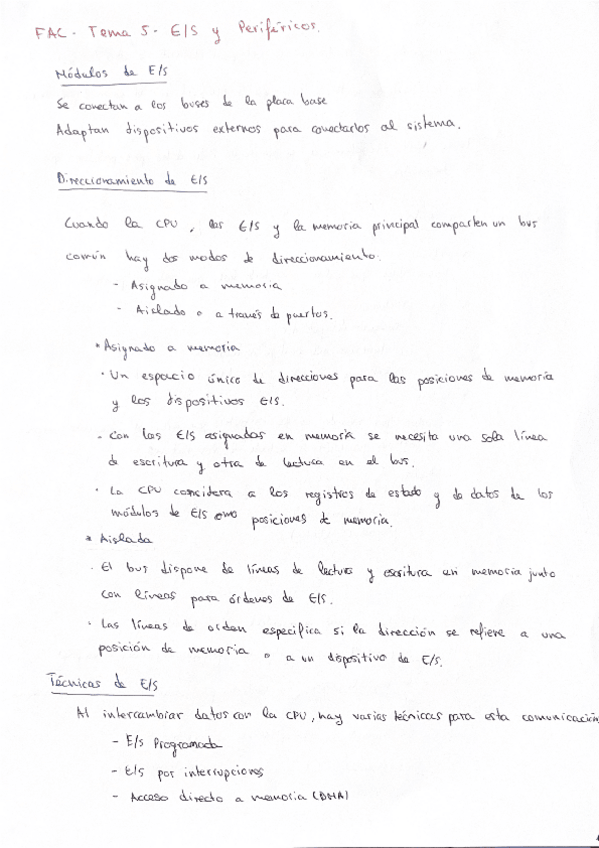 FAC - Tema 5 - E/S y Periféricos.
Módulos de E/S
Se conectan a los buses de la placa base
Adaptan dispositivos externos para conectarlos al sistema.
Direccionamiento de E/S
Cuando la CPU, las E/S y la memoria principal comparten un bus
común hay dos modos de direccionamiento:
- Asignado a memoria
- Aislado o a través de puertos.
* Asignado a memoria
· Un espacio único de direcciones para las posiciones de memoria
y los dispositivos E/S.
- Con las E/S asignadas en memoria se necesita una sola línea
de escritura y otra de lectura en el bus.
· La CPU considera a los registros de estado y de datos de los
módulos de E/S como posiciones de memoria.
* Aislada
· El bus dispone de líneas de lectura y escritura en memoria junto
con líneas para órdenes de E/S.
· Las líneas de orden especifica si la dirección se refiere a una
posición de memoria o a un dispositivo de E/S.
Técnicas de E/S
Al intercambiar datos con la CPU, hay varias técnicas para esta comunicación
- E/S Programada
- E/S por interrupciones
- Acceso directo a memoria (DMA)